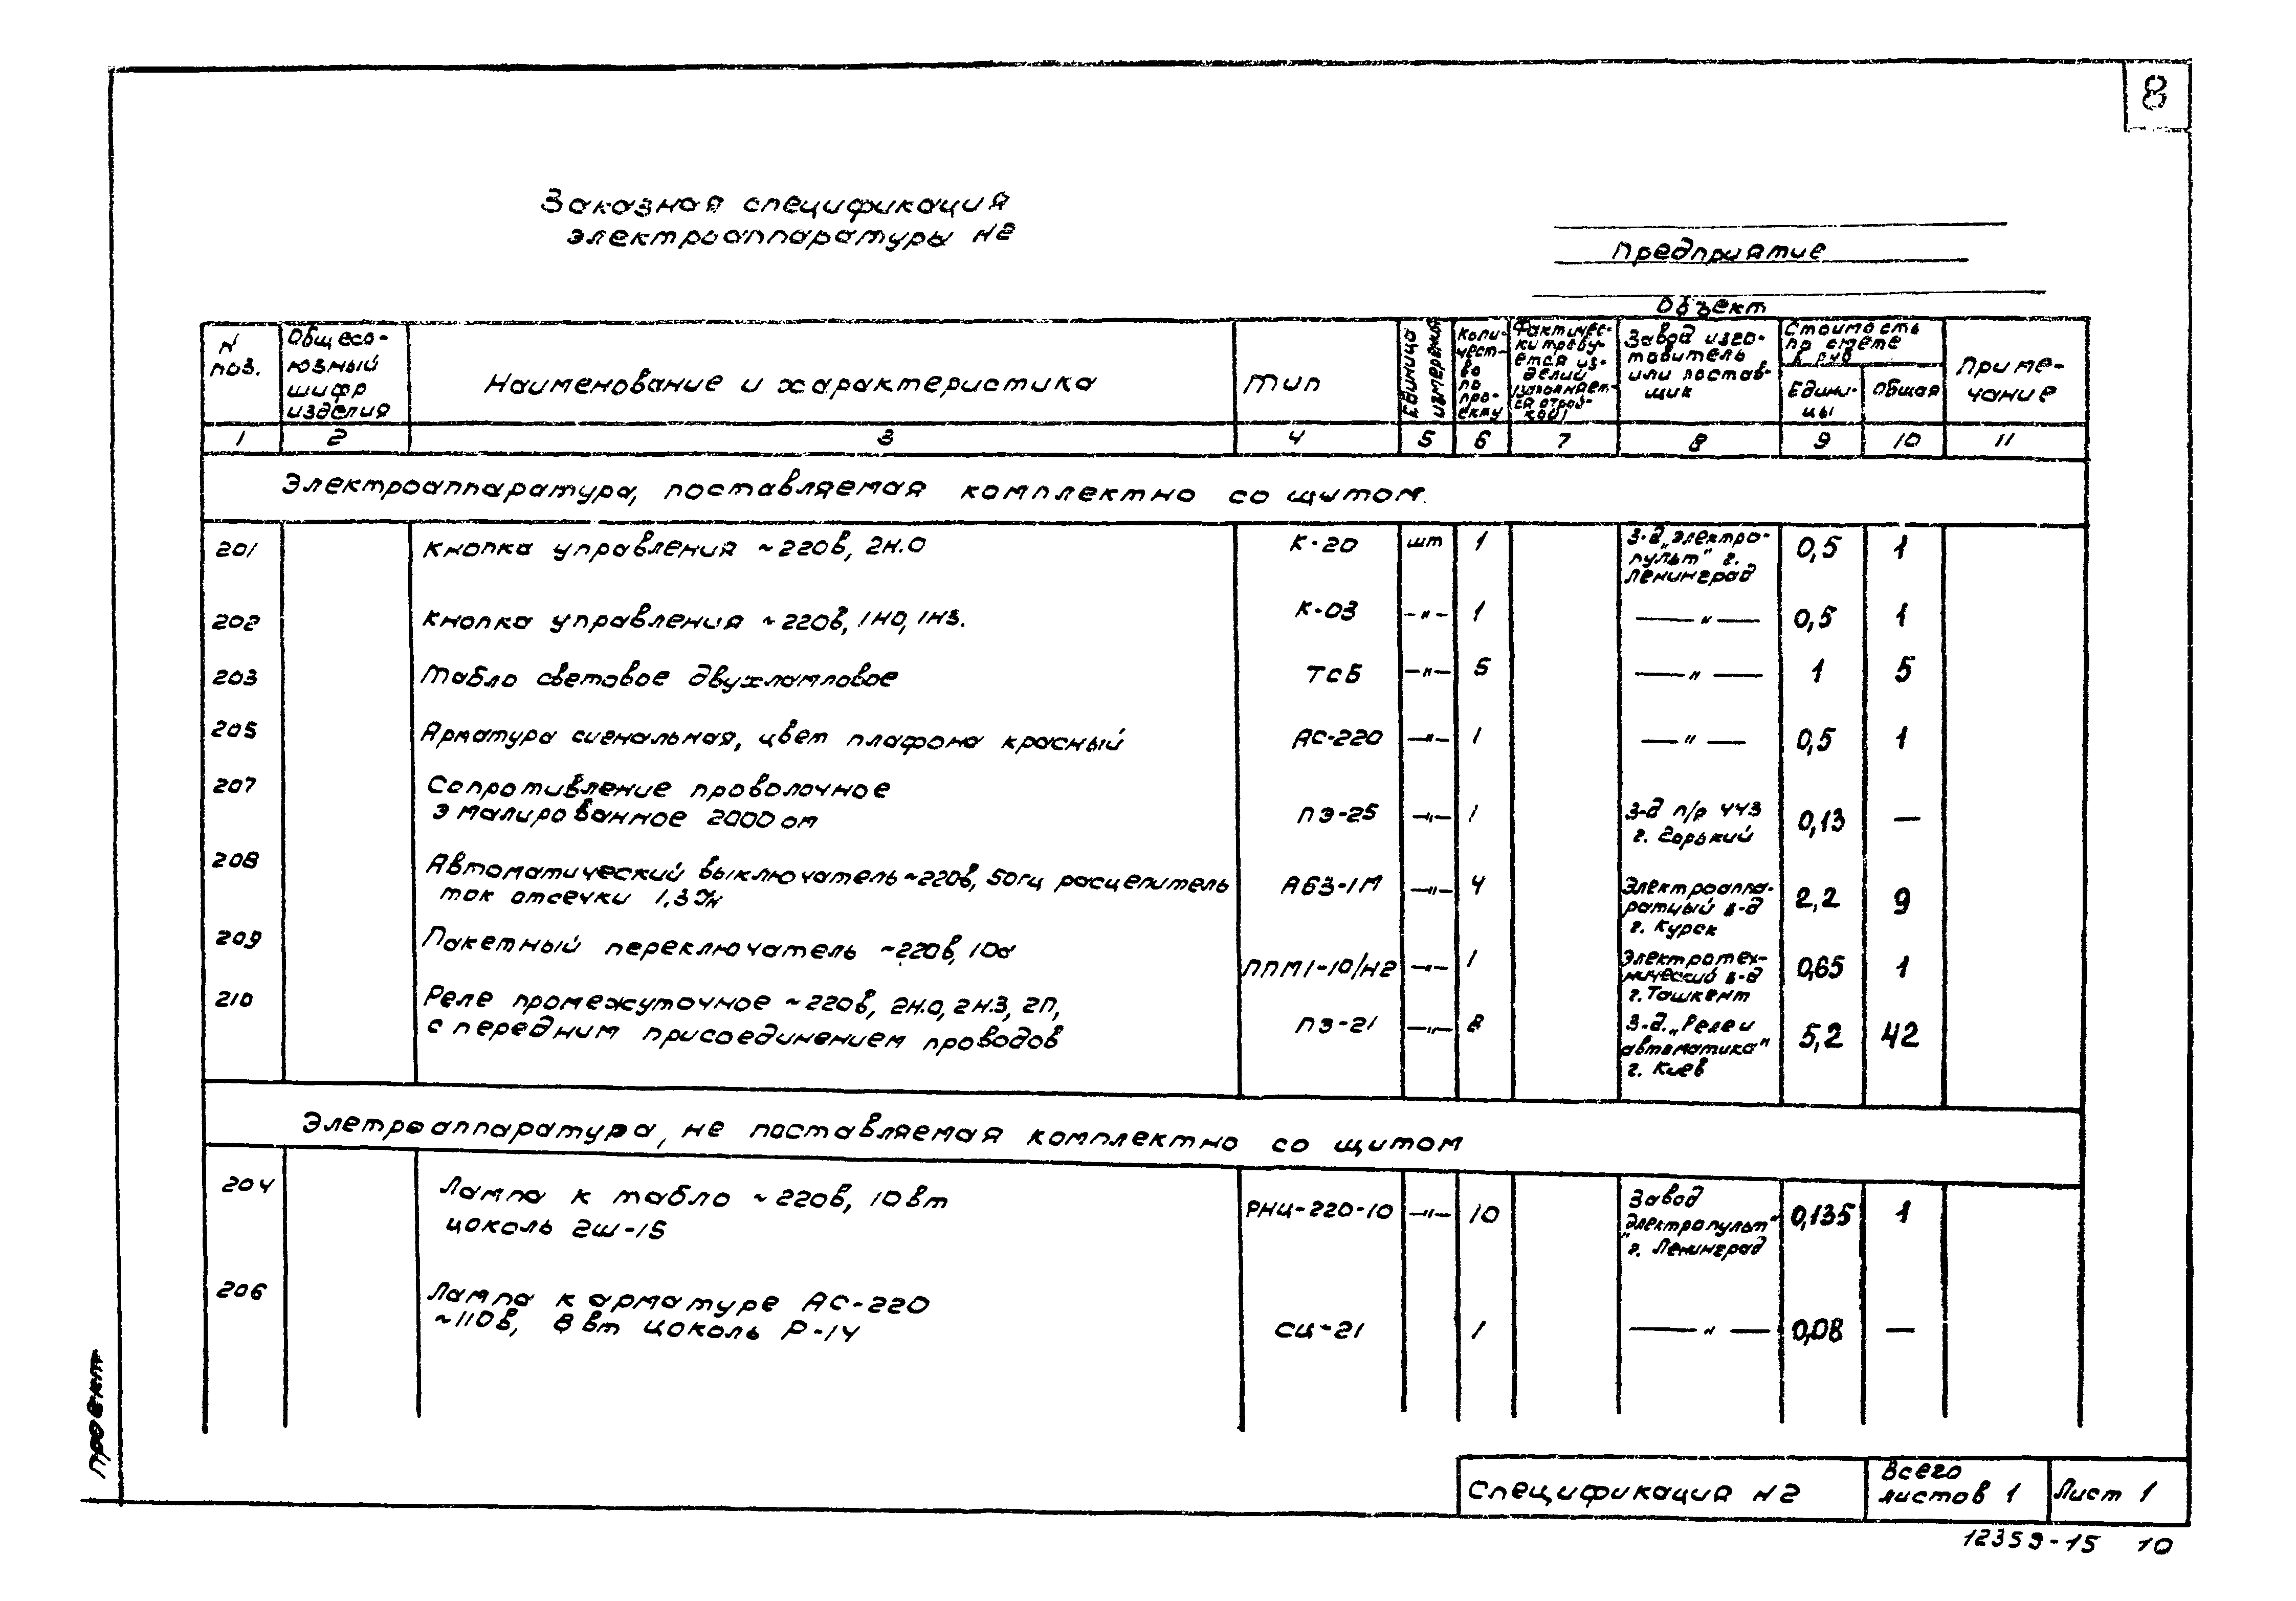 8
Заказная спецификация
электроаппаратуры N2
Предприятие
Объект
N поз.
Общесоюзный шифр изделия
Наименование и характеристика
Тип
Единица измерения
Количество по проекту
Завод изготовитель или поставщик
Стоимость по смете в руб
Единицы
Общая
Примечание
1 2 3 4 5 6 7 8 9 10 11
Электроаппаратура, поставляемая комплектно со щитом.
201 Кнопка управления ~220в, 2н.о К-20 шт 1 З-д „Электро- 0,5 1
пульт" г.
Ленинград
202 Кнопка управления ~220в, 1но, 1нз. К-03 —"— 1 —"— 0,5 1
203 Табло световое двухламповое ТСБ —"— 5 —"— 1 5
205 Арматура сигнальная, цвет плафона красный АС-220 —"— 1 —"— 0,5 1
207 Сопротивление проволочное
эмалированное 2000 ом ПЭ-25 —"— 1 З-д п/я 443 0,13 —
г. Горький
208 Автоматический выключатель ~220в, 50гц расцепитель АБ3-1М —"— 4 Электроаппа- 2,2 9
ток отсечки 1.3 Iн ратный з-д
г. Курск
209 Пакетный переключатель ~220в, 10а ППМ1-10/Н2 —"— 1 Электротех- 0,65 1
нический з-д
г. Ташкент
210 Реле промежуточное ~220в, 2н.о, 2н.з, 2п,
с передним присоединением проводов ПЭ-21 —"— 8 З-д. „Реле и 5,2 42
автоматика"
г. Киев
Элетроаппаратура, не поставляемая комплектно со щитом
204 Лампа к табло ~220в, 10вт РНЦ-220-10 —"— 10 Завод 0,135 1
цоколь 2ш-15 Электропульт"
г. Ленинград
206 Лампа к арматуре АС-220
~110в, 8вт цоколь Р-14 СЦ-21 1 —"— 0,08 —
проект
Спецификация N2
Всего
листов 1
Лист 1
12359-15 10